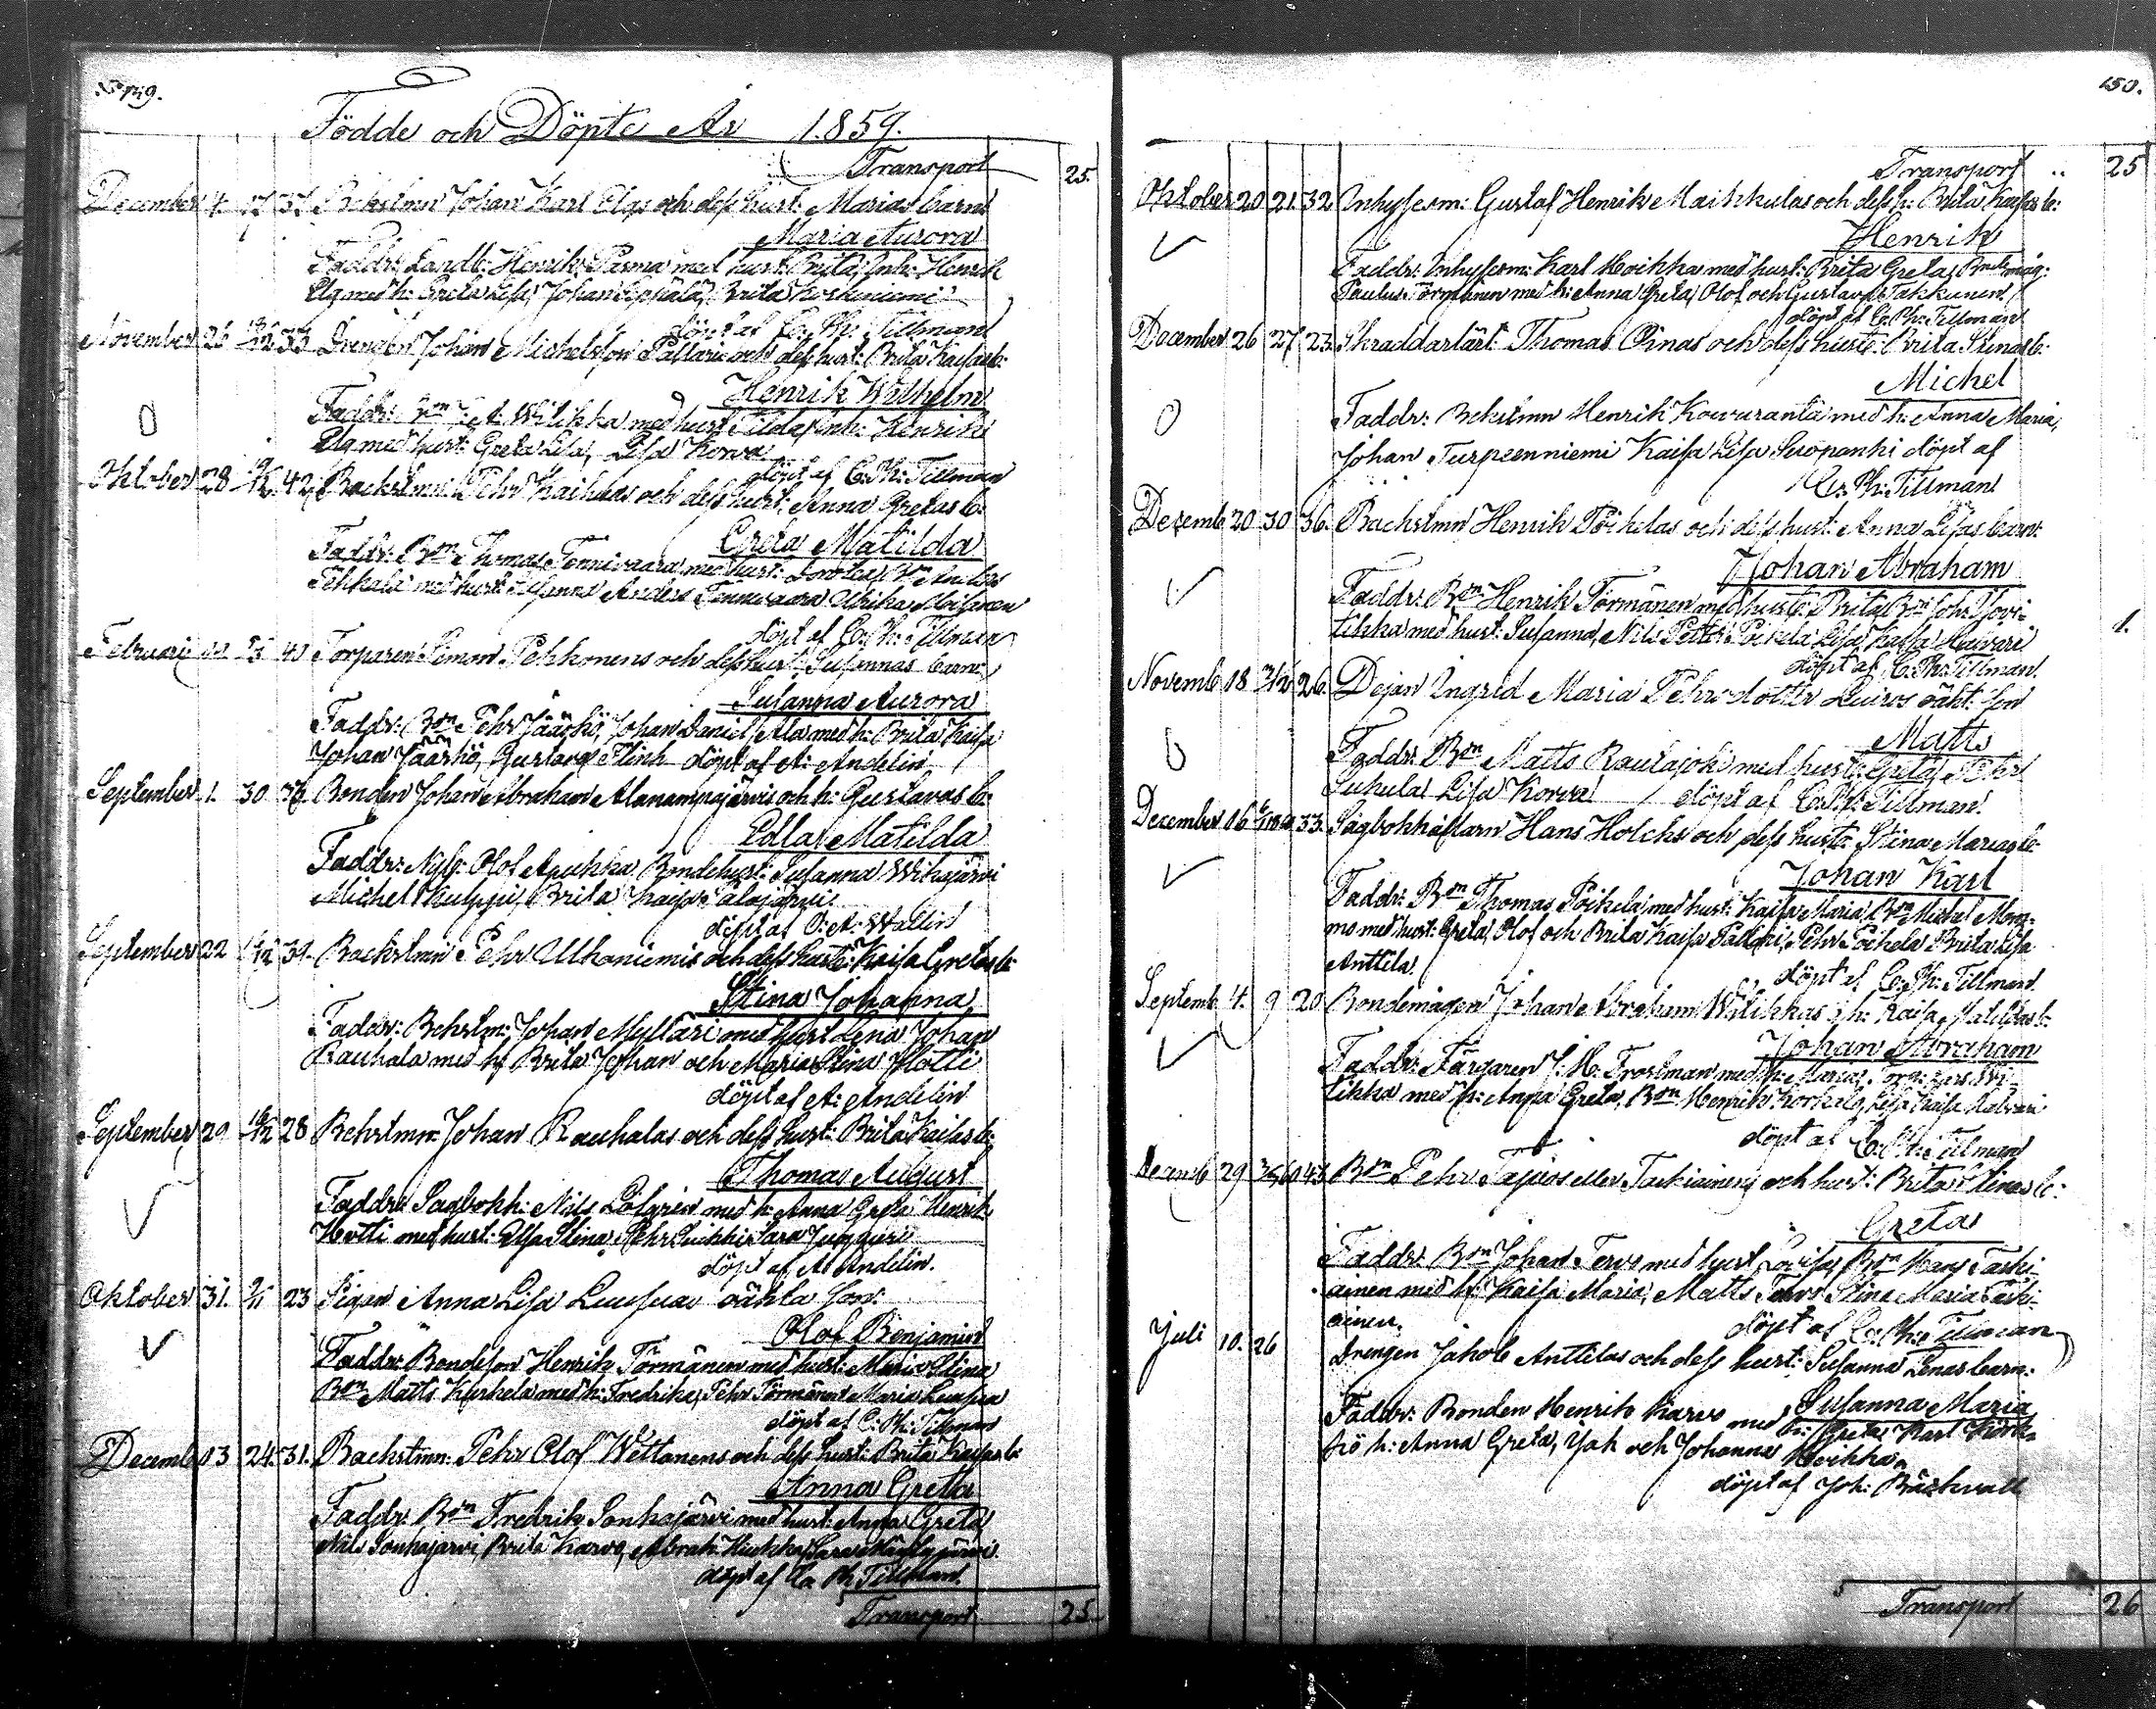 149.
Födde och Döpte År 1859.
Transport 25.
December 4. 37 Bckstmn Johan Karl Elgs och dess hust: Marias barn
Maria Aurora
Faddr: Landb: Henrik Parma med hust: Brita, Inh: Henrik
Elg med h: Greta Lisa, Johan Seppälä, Brita Koskiniemi
döpt af C. Ph: Tillman
November 26 33 Drengen Johan Michelsson Pallaris och dess hust: Brita Kaisas b:
Henrik Wilhelm
Faddr: Bon J. A. Wilikka med hust Tilda, Inh: Henrik
Elg med hust: Greta Lisa, Lisa Korva
döpt af C. Ph: Tillman
Oktober 28 42 Backstmn Pehr Kaihuas och dess hust: Anna Gretas b:
Greta Matilda
Faddr: Bon Thomas Tennivaara med hust: Bon Anders
med hust: Anders Tennivaara Ulrika Moilanen
döpt af C. Ph: Tillman
Februari 40 Torparen Simon Pekkonens och dess hust: Susannas barn
Susanna Aurora
Faddr: Bon Pehr Jääskö, Johan Daniel Ala med h: Brita Kaisa
Johan Jääskö, Gustava Flink döpt af A: Andelin
September 1. 30 36 Bonden Johan Abraham Alanampajärvis och h: Gustavas b:
Edla Matilda
Faddr: Nybg: Olof Apukka Bondehust: Susanna Wikajärvi
Michel Kulppi, Brita Kaisa Talajärvi
döpt af O: A: Wallin
September 22 39. Backstmn Pehr Ulkoniemis och dess hust: Kaisa Gretas b:
Stina Johanna
Faddr: Bckstm: Johan Mylläri med hust Lena Johan
Rauhala med h: Brita Johan och Maria Stina Hotti
döpt af A: Andelin
September 29 28 Bckstmn Johan Rauhalas och dess hust: Brita Kaisas b:
Thomas August
Faddr: Sagbokh: Nils Löfgren med h: Anna Greta Henrik
Hotti med hust: Elsa Stina, Pehr Sara
döpt af A: Andelin.
Oktober 31. 2/11 23 Pigan Anna Lisa Luusuas oäkta son
Olof Benjamin
Faddr: Bondeson Henrik Törmänen med hust: Maria Stina
Bon Matts Kerkela med h: Fredrika, Pehr Törmänen Maria Luusua
döpt af C: Ph: Tillman
Decemb 13 24. 31. Backstmn: Pehr Olof Wettanens och dess hust: Brita Kaisas b:
Anna Greta
Faddr: Bon Fredrik Sonkajärvi med hust: Anna Greta
Nils Sonkajarvi, Brita Karvo, Abrah:
döpt af C. Ph: Tillman.
Transport 25
150.
Transport .. 25
Oktober 20 21. 32 Inhysesm: Gustaf Henrik Maikkulas och dess h: Brita Kaisas b:
Henrik
Faddr: Inhysesm: Karl Hoikka med hust: Brita Greta, Bndmåg:
Paulus Törmänen med h: Anna Greta, Olof och Gustava Takkunen
döpt af C: Ph: Tillman
December 26 27 23. Skraddarlärl: Thomas Oinas och dess hust: Brita Stinas b:
Michel
Faddr: Bckstmn Henrik Kouvuranta med h: Anna Maria,
Johan Turpeenniemi Kaisa Lisa Suopanki döpt af
C: Ph: Tillman
Decemb 20 30 36. Backstmn Henrik Poikelas och dess hust: Anna Lisas barn:
Johan Abraham
Faddr: Bon Henrik Törmänen med hust: Brita Bon Joh: Hovi-
likka med hust: Susanna, Nils Petter Poikela Lisa Kaisa 1.
döpt af C: Ph: Tillman.
Novemb 18 26. Dejan Ingrid Maria Pehrsdotter Luiros oäkt: son
Matts
Faddr: Bon Matts Rautajoki med hust: Greta, Pehr
Sukula Lisa Korva döpt af C: Ph: Tillman.
December 16 33. Sågbokhållarn Hans Holcks och dess hust: Stina Marias b:
Johan Karl
Faddr: Bon Thomas Poikela med hust: Kaisa Maria, Bon Michel Mom-
mo med hust: Greta, Olof och Brita Kaisa Pallari, Pehr Poikela Brita Lisa
Anttila.
döpt af C: Ph: Tillman
Septemb 4. 9 20 Bondemågen Johan Abraham Wilikkas o h: Kaisa Matildas b:
Johan Abraham
Faddr: Färgaren J: H: Frostman med h: Maria, Wi-
likka med h: Anna Greta, Bon Henrik Lisa Kaisa
döpt af C: Ph: Tillman
Decemb 29 43 Bon Pehr Tapios eller Taskiainens och hust: Brita Stinas b:
Greta
Faddr: Bon Johan Tervo med hust Lovisa, Bon Hans Taski-
ainen med h: Kaisa Maria, Matts Tervo Stina Maria Taski-
ainen.
döpt af C: Ph: Tillman
Juli 10. 26 Drengen Jakob Anttilas och dess hust: Susanna Lenas barn:
Susanna Maria
Faddr: Bonden Henrik Karvo med h: Greta, Karl Körk-
kö h: Anna Greta, Jak och Johanna Hoikka
döpt af Joh: Bäckvall
Transport 26